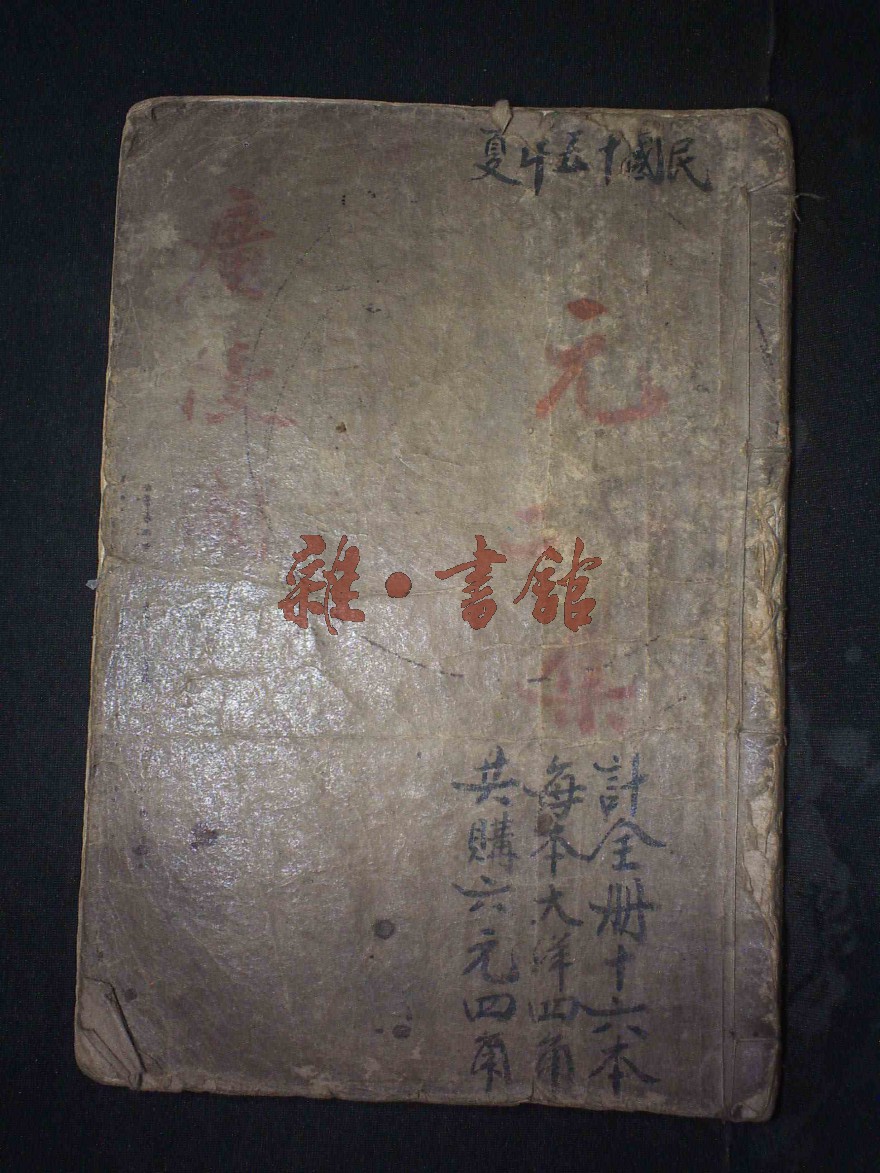 民國十五年夏
元
雜·書館
計全冊十六本
每本大洋四角
共購六元四角